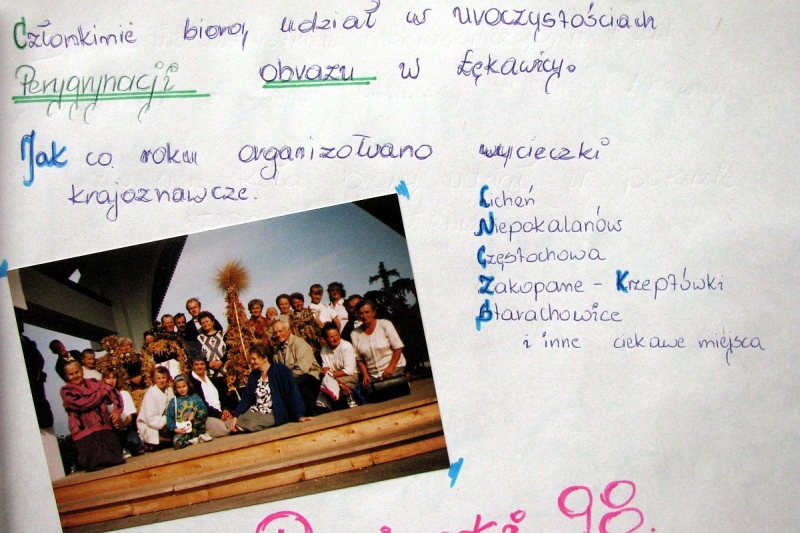 Członkimie biorą udział w uroczystościach
Perygrynacji obrazu w Łękawicy.
Jak co roku organizowano wycieczki
krajoznawcze.
Licheń
Niepokalanów
Częstochowa
Zakopane - Krzeptówki
Starachowice
i inne ciekawe miejsca
98.